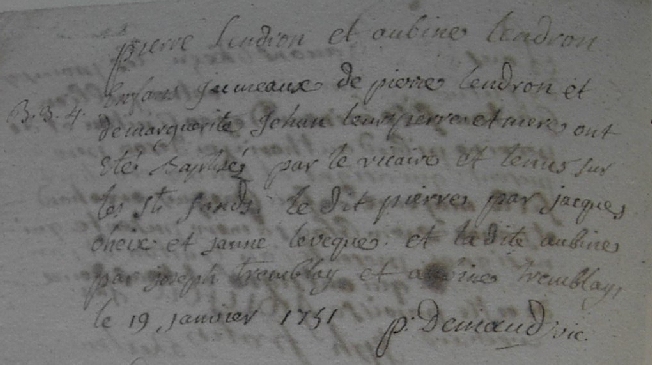 pierre Lendron et aubine Lendron
Enfans jumeaux de pierre Lendron et
B. 3. 4.
demarguerite Johan leurs pere et mere ont
été Baptisés par le vicaire et tenus sur
les Sts fonds. Le dit pierre par jacques
cheix et janne leveque et ladite aubine
par joseph tremblay et aubine tremblay,
le 19 janvier 1751 p. Demaud vic.